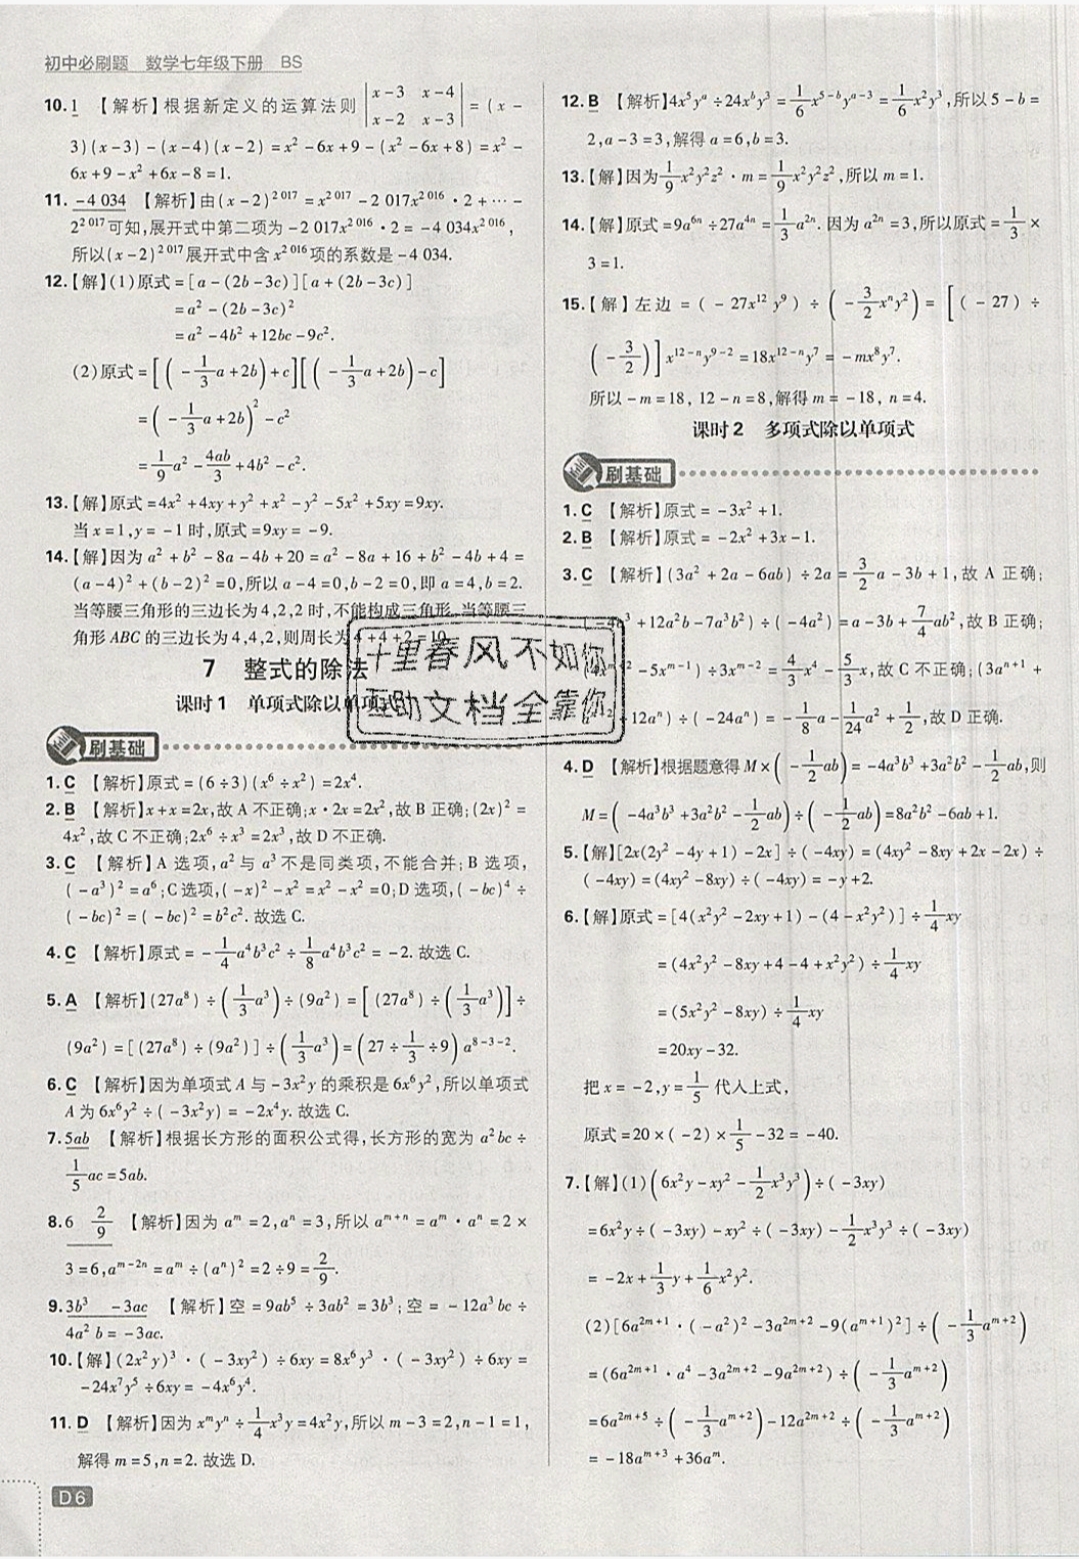 初中必刷题 数学七年级下册 BS
10. 1 【解析】根据新定义的运算法则 |x-3 x-4; x-2 x-3| =(x-
3)(x-3)-(x-4)(x-2)=x²-6x+9-(x²-6x+8)=x²-
6x+9-x²+6x-8=1.
11. -4 034 【解析】由(x-2)^{2 017}=x^{2 017}-2 017x^{2 016}·2+…-
2^{2 017}可知,展开式中第二项为-2 017x^{2 016}·2=-4 034x^{2 016},
所以(x-2)^{2 017}展开式中含x^{2 016}项的系数是-4 034.
12.【解】(1)原式=[a-(2b-3c)][a+(2b-3c)]
=a²-(2b-3c)²
=a²-4b²+12bc-9c².
(2)原式=[(-1/3a+2b)+c][(-1/3a+2b)-c]
=(-1/3a+2b)²-c²
=1/9a²-4ab/3+4b²-c².
13.【解】原式=4x²+4xy+y²+x²-y²-5x²+5xy=9xy.
当x=1,y=-1时,原式=9xy=-9.
14.【解】因为a²+b²-8a-4b+20=a²-8a+16+b²-4b+4=
(a-4)²+(b-2)²=0,所以a-4=0,b-2=0,即a=4,b=2.
当等腰三角形的三边长为4,2,2时,不能构成三角形,当等腰三
角形ABC的三边长为4,4,2,则周长为4+4+2=10.
7 整式的除法
课时1 单项式除以单项式
刷基础
1. C 【解析】原式=(6÷3)(x⁶÷x²)=2x⁴.
2. B 【解析】x+x=2x,故A不正确;x·2x=2x²,故B正确;(2x)²=
4x²,故C不正确;2x⁶÷x³=2x³,故D不正确.
3. C 【解析】A选项,a²与a³不是同类项,不能合并;B选项,
(-a³)²=a⁶;C选项,(-x)²-x²=x²-x²=0;D选项,(-bc)⁴÷
(-bc)²=(-bc)²=b²c².故选C.
4. C 【解析】原式=-1/4a⁴b³c²÷1/8a⁴b³c²=-2.故选C.
5. A 【解析】(27a⁸)÷(1/3a³)÷(9a²)=[(27a⁸)÷(1/3a³)]÷
(9a²)=[(27a⁸)÷(9a²)]÷(1/3a³)=(27÷1/3÷9)a^{8-3-2}.
6. C 【解析】因为单项式A与-3x²y的乘积是6x⁶y²,所以单项式
A为6x⁶y²÷(-3x²y)=-2x⁴y.故选C.
7. 5ab 【解析】根据长方形的面积公式得,长方形的宽为a²bc÷
1/5ac=5ab.
8. 6 2/9 【解析】因为a^m=2,a^n=3,所以a^{m+n}=a^m·a^n=2×
3=6,a^{m-2n}=a^m÷(a^n)²=2÷9=2/9.
9. 3b³ -3ac 【解析】空=9ab⁵÷3ab²=3b³;空=-12a³bc÷
4a²b=-3ac.
10.【解】(2x²y)³·(-3xy²)÷6xy=8x⁶y³·(-3xy²)÷6xy=
-24x⁷y⁵÷6xy=-4x⁶y⁴.
11. D 【解析】因为x^m y^n÷1/4x³y=4x²y,所以m-3=2,n-1=1,
解得m=5,n=2.故选D.
D6
12. B 【解析】4x⁵y^a÷24x^b y³=1/6x^{5-b}y^{a-3}=1/6x²y³,所以5-b=
2,a-3=3,解得a=6,b=3.
13.【解】因为1/9x²y²z²·m=1/9x²y²z²,所以m=1.
14.【解】原式=9a^{6n}÷27a^{4n}=1/3a^{2n}.因为a^{2n}=3,所以原式=1/3×
3=1.
15.【解】左边=(-27x¹²y⁹)÷(-3/2x^n y²)=[(-27)÷
(-3/2)]x^{12-n}y^{9-2}=18x^{12-n}y⁷=-mx⁸y⁷.
所以-m=18,12-n=8,解得m=-18,n=4.
课时2 多项式除以单项式
刷基础
1. C 【解析】原式=-3x²+1.
2. B 【解析】原式=-2x²+3x-1.
3. C 【解析】(3a²+2a-6ab)÷2a=3/2a-3b+1,故A正确;
(-4a³+12a²b-7a³b²)÷(-4a²)=a-3b+7/4ab²,故B正确;
-5x^{m-1})÷3x^{m-2}=4/3x⁴-5/3x,故C不正确;(3a^{n+1}+
+12a^n)÷(-24a^n)=-1/8a-1/24a²+1/2,故D正确.
十里春风不如你
互助文档全靠你
4. D 【解析】根据题意得M×(-1/2ab)=-4a³b³+3a²b²-1/2ab,则
M=(-4a³b³+3a²b²-1/2ab)÷(-1/2ab)=8a²b²-6ab+1.
5.【解】[2x(2y²-4y+1)-2x]÷(-4xy)=(4xy²-8xy+2x-2x)÷
(-4xy)=(4xy²-8xy)÷(-4xy)=-y+2.
6.【解】原式=[4(x²y²-2xy+1)-(4-x²y²)]÷1/4xy
=(4x²y²-8xy+4-4+x²y²)÷1/4xy
=(5x²y²-8xy)÷1/4xy
=20xy-32.
把x=-2,y=1/5代入上式,
原式=20×(-2)×1/5-32=-40.
7.【解】(1)(6x²y-xy²-1/2x³y³)÷(-3xy)
=6x²y÷(-3xy)-xy²÷(-3xy)-1/2x³y³÷(-3xy)
=-2x+1/3y+1/6x²y².
(2)[6a^{2m+1}·(-a²)²-3a^{2m+2}-9(a^{m+1})²]÷(-1/3a^{m+2})
=(6a^{2m+1}·a⁴-3a^{2m+2}-9a^{2m+2})÷(-1/3a^{m+2})
=6a^{2m+5}÷(-1/3a^{m+2})-12a^{2m+2}÷(-1/3a^{m+2})
=-18a^{m+3}+36a^m.